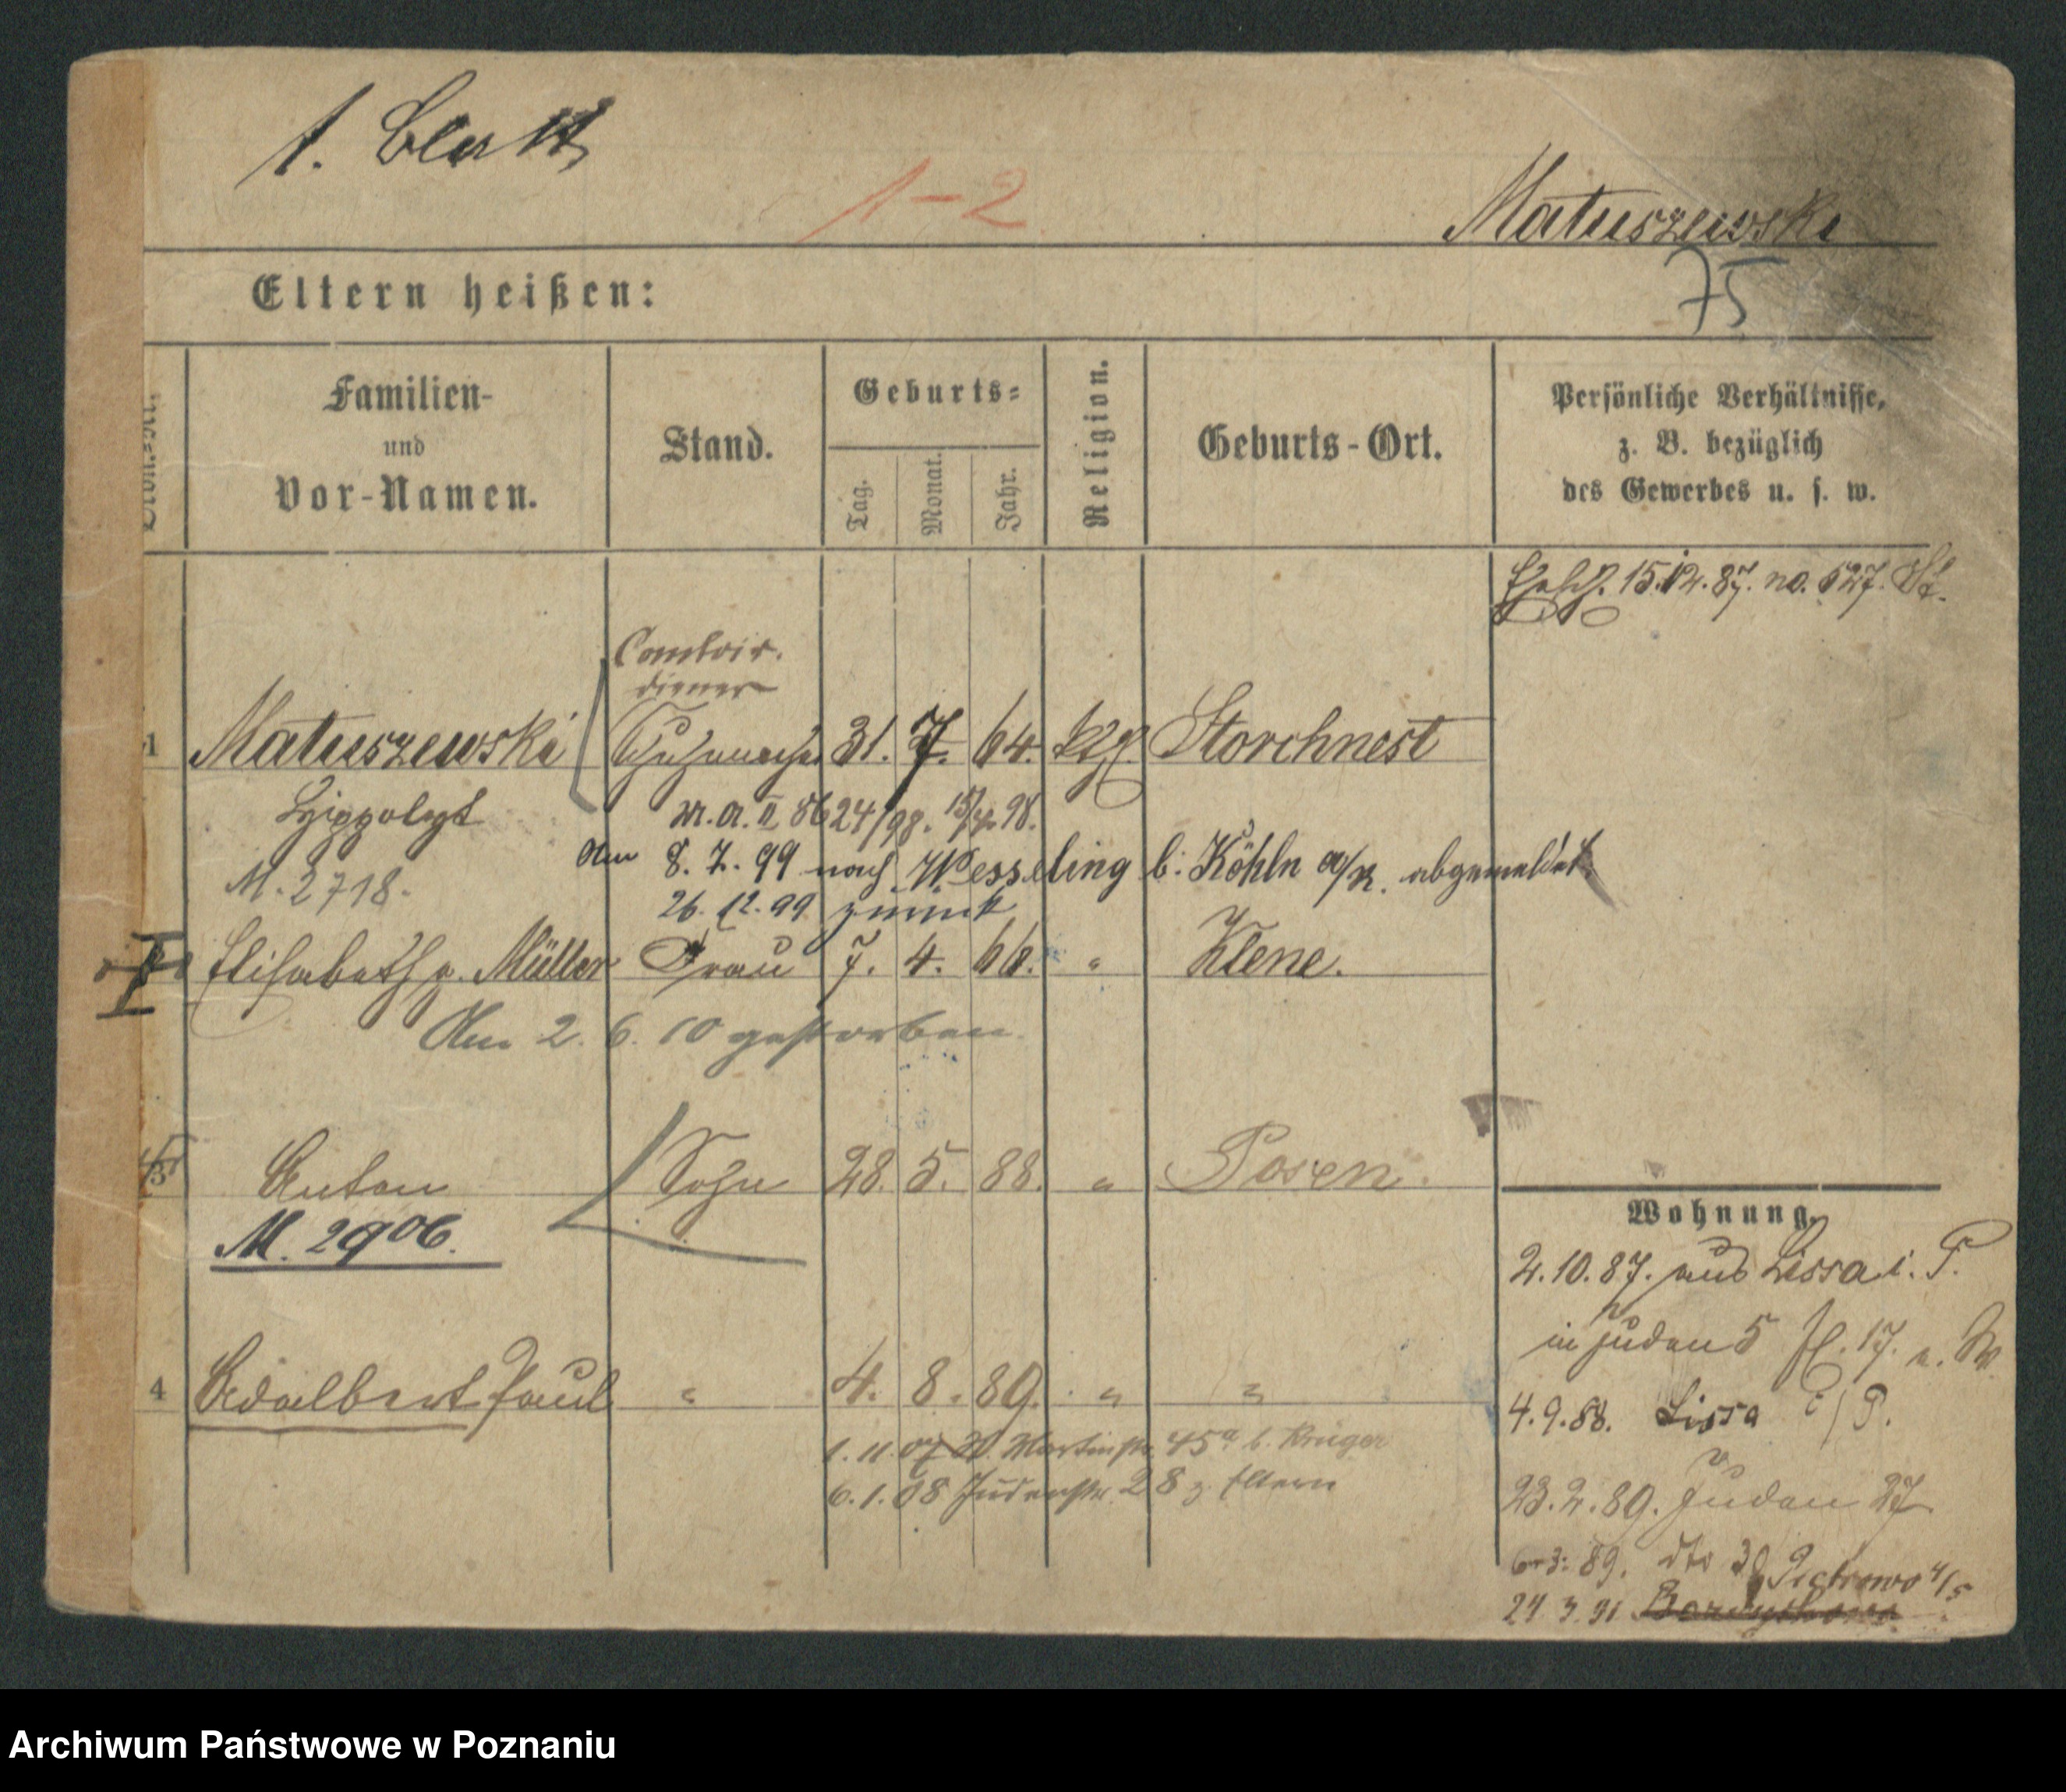 1. Blatt
1-2
Matuszewski
75
Eltern heißen:
Familien-
und
Vor-Namen.
Stand.
Geburts-
Tag.
Monat.
Jahr.
Religion.
Geburts-Ort.
Persönliche Verhältnisse,
z. B. bezüglich
des Gewerbes u. s. w.
15.12.87. no. 527.
Comtoir.
diener
1 Matuszewski Schuhmacher 31. 7. 64. Storchnest
Hippolyt
24/98. 98.
M. 2718.
Am 8. 7. 99 nach Wesseling b. Köhln a/R. abgemeldet
26. 12. 99 zurück
Elisabeth g. Müller Frau 7. 4. " Klene.
Am 2. 6. 10 gestorben
3 Anton Sohn 28. 5. 88. " Posen.
M. 2906.
4 Adalbert Paul " 4. 8. 89. " "
1. 11. 07 Martinstr. 45a b. Krüger
6. 1. 08 Judenstr. 28 z. Eltern
Wohnung.
2.10.87. aus Lissa i. P.
in Juden 5 17.
4.9.88. Lissa i/P.
23.2.89. Juden 27
89. dto 30 Piotrowo 4/5
24 3. 91
Archiwum Państwowe w Poznaniu